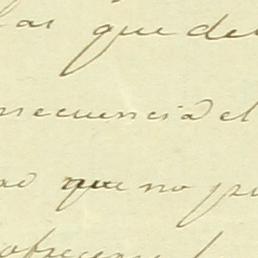 las que de
nsecuencia el
que no p
ofrecen